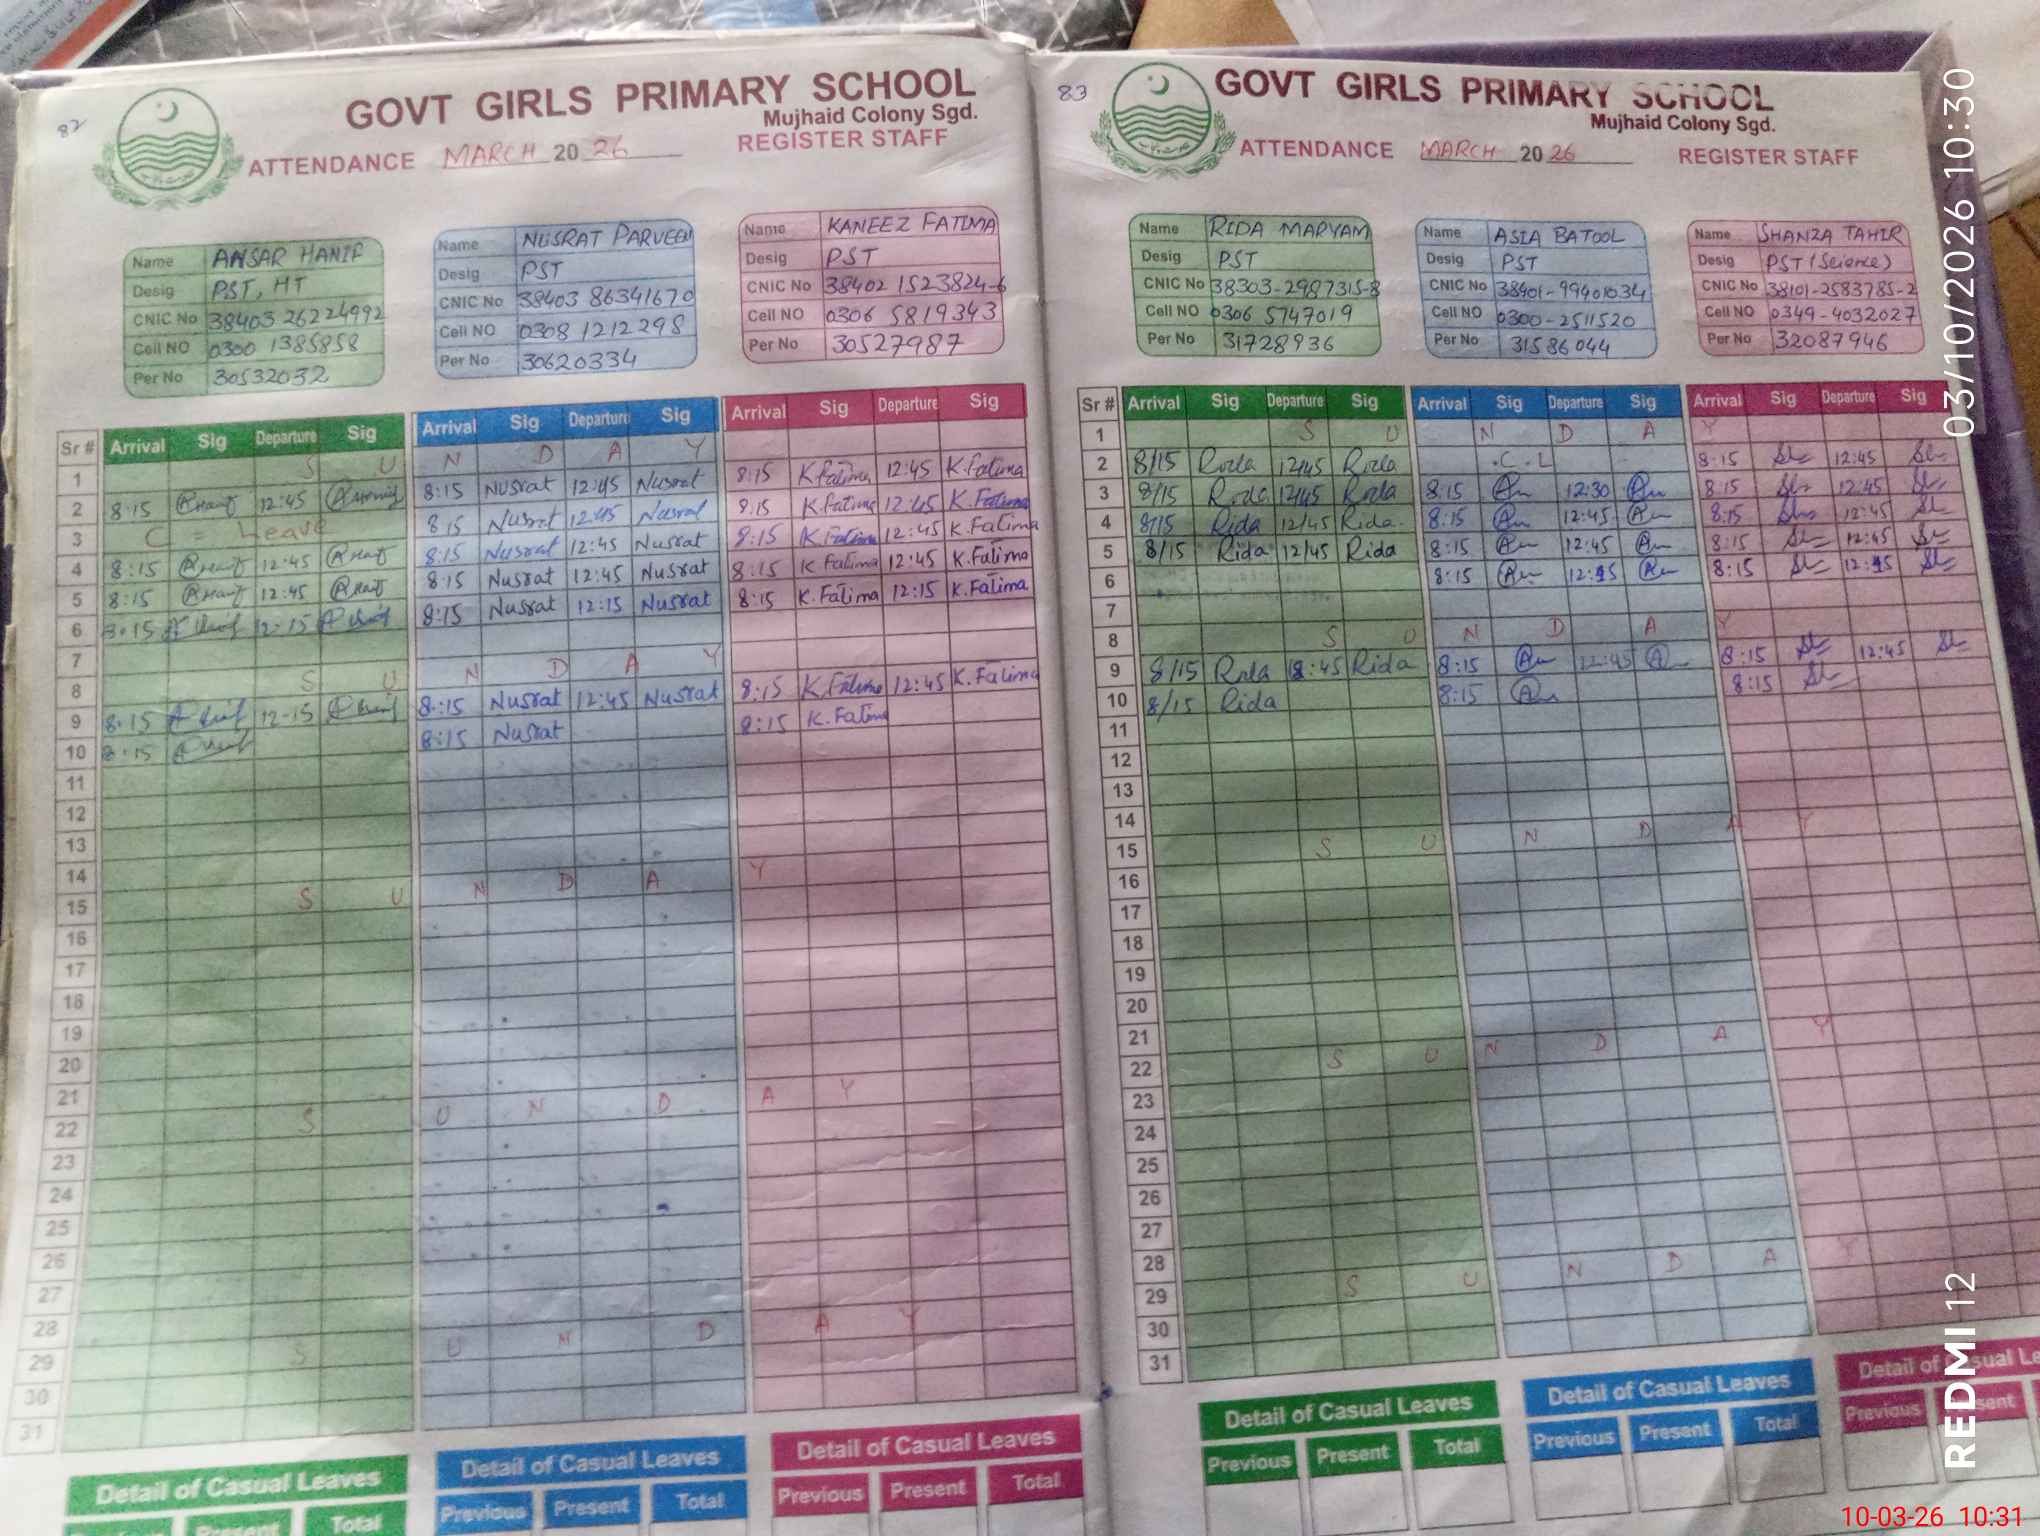 82
GOVT GIRLS PRIMARY SCHOOL
Mujhaid Colony Sgd.
ATTENDANCE MARCH 2026 REGISTER STAFF
Name ANSAR HANIF
Desig PST, HT
CNIC No 38403 26224992
Cell NO 0300 1385858
Per No 30532032
Name NUSRAT PARVEEN
Desig PST
CNIC No 38403 86341670
Cell NO 0308 1212298
Per No 30620334
Name KANEEZ FATIMA
Desig PST
CNIC No 38402 1523824-6
Cell NO 0306 5819343
Per No 30527987
Sr # Arrival Sig Departure Sig Arrival Sig Departure Sig Arrival Sig Departure Sig
1 S U N D A Y
2 8:15 12:45 8:15 Nusrat 12:45 Nusrat 8:15 K Fatima 12:45 K.Fatima
3 C = Leave 8:15 Nusrat 12:45 Nusrat 8:15 K.Fatima 12:45 K.Fatima
4 8:15 12:45 8:15 Nusrat 12:45 Nusrat 8:15 K Fatima 12:45 K.Fatima
5 8:15 12:45 8:15 Nusrat 12:45 Nusrat 8:15 K Fatima 12:45 K.Fatima
6 12-15 8:15 Nusrat 12:15 Nusrat 8:15 K.Fatima 12:15 K.Fatima
7
8 S U N D A Y
9 8:15 12-15 8:15 Nusrat 12:45 Nusrat 8:15 K.Fatima 12:45 K.Fatima
10 8:15 8:15 Nusrat 8:15 K.Fatima
11
12
13
14
15 S U N D A Y
16
17
18
19
20
21
22 S U N D A Y
23
24
25
26
27
28
29 S U N D A Y
30
31
Detail of Casual Leaves
Previous Present Total
Detail of Casual Leaves
Previous Present Total
Detail of Casual Leaves
Previous Present Total
83
GOVT GIRLS PRIMARY SCHOOL
Mujhaid Colony Sgd.
ATTENDANCE MARCH 2026 REGISTER STAFF
Name RIDA MARYAM
Desig PST
CNIC No 38303-2987315-8
Cell NO 0306 5747019
Per No 31728936
Name ASIA BATOOL
Desig PST
CNIC No 38401-99401034
Cell NO 0300-2511520
Per No 31586044
Name SHANZA TAHIR
Desig PST (Science)
CNIC No 38101-2583785-2
Cell NO 0349-4032027
Per No 32087946
Sr # Arrival Sig Departure Sig Arrival Sig Departure Sig Arrival Sig Departure Sig
1 S U N D A Y
2 8/15 Rida 12/45 Rida .C.L 8:15 12:45
3 8/15 Rida 12/45 Rida 8:15 12:30 8:15 12:45
4 8/15 Rida 12/45 Rida. 8:15 12:45 8:15 12:45
5 8/15 Rida 12/45 Rida 8:15 12:45 8:15 12:45
6 8:15 8:15
7
8 S U N D A Y
9 8/15 Rida Rida 8:15 12:45 8:15 12:45
10 8/15 Rida 8:15 8:15
11
12
13
14
15 S U N D A Y
16
17
18
19
20
21
22 S U N D A Y
23
24
25
26
27
28
29 S U N D A Y
30
31
Detail of Casual Leaves
Previous Present Total
Detail of Casual Leaves
Previous Present Total
Detail of
Previous
REDMI 12
03/10/2026 10:30
10-03-26 10:31